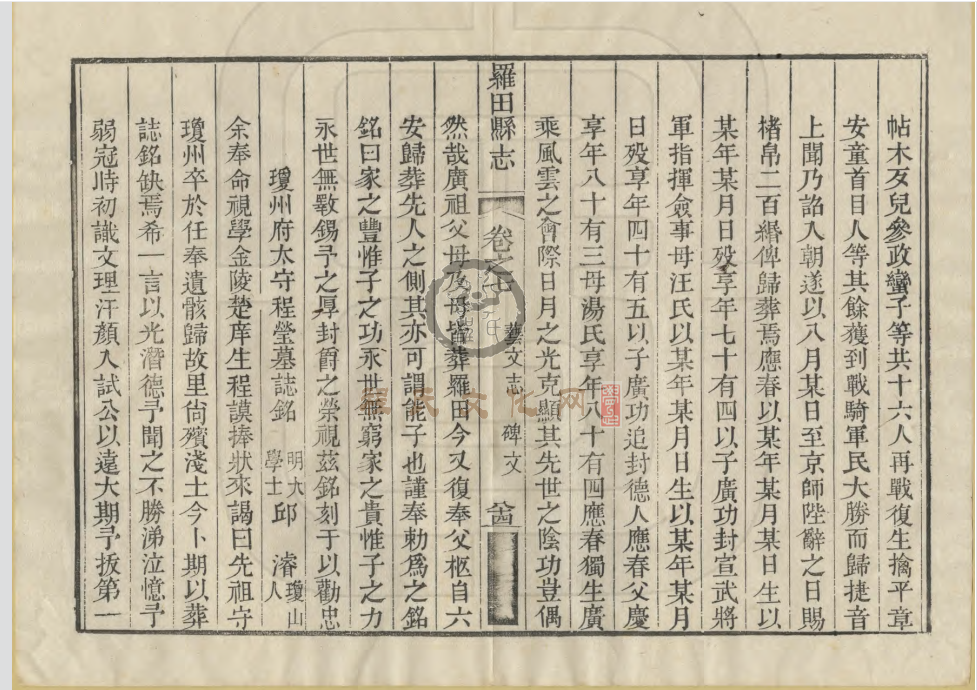 帖木歹兒參政蠻子等共十六人再戰復生擒平章
安童首目人等其餘獲到戰騎軍民大勝而歸捷音
上聞乃詔入朝遂以八月某日至京師陛辭之日賜
楮帛二百緡俾歸葬焉應春以某年某月某日生以
某年某月日歿享年七十有四以子廣功封宣武將
軍指揮僉事母汪氏以某年某月日生以某年某月
日歿享年四十有五以子廣功追封德人應春父慶
享年八十有三母湯氏享年八十有四應春獨生廣
乘風雲之會際日月之光克顯其先世之陰功豈偶
羅田縣志 卷之七 藝文志 碑文
然哉廣祖父母及母皆葬羅田今又復奉父柩自六
安歸葬先人之側其亦可謂能子也謹奉勅爲之銘
銘曰家之豐惟子之功永世無窮家之貴惟子之力
永世無斁錫予之厚封爵之榮視茲銘刻于以勸忠
瓊州府太守程瑩墓誌銘 明大學士邱濬瓊山人
余奉命視學金陵楚庠生程謨捧狀來謁曰先祖守
瓊州卒於任奉遺骸歸故里尙殯淺土今卜期以葬
誌銘缺焉希一言以光潛德予聞之不勝涕泣憶予
弱冠時初識文理汗顏入試公以遠大期予拔第一